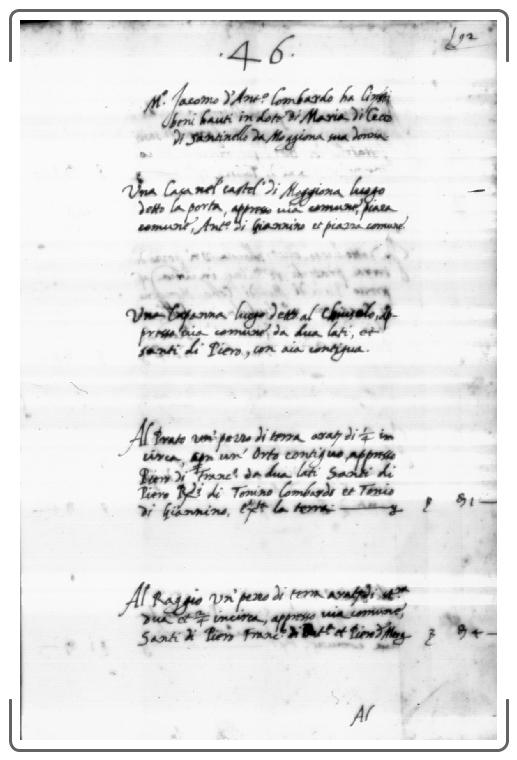 .46.
192
Mº. Jacomo d'Antº. Lombardo ha l'infti
beni hauti in dote di Maria di Cecco
di Santinello da Moggiona sua donna
Una Casa nel castelº di Moggiona luogo
detto la porta, appresso via comune, piaza
comune, Antº. di Giannino et piazza comune.
Una Capanna luogo detto al Chiusolo, ap-
presso via comune da dua lati, et
Santi di Piero, con aia contigua.
Al Prato un' pezzo di terra di in
circa, un' Orto contiguo, appresso
Piero di Francº. da dua lati Santi di
Piero di Tonino Lombardo et Tonio
di Giannino, la terra
Al Raggio un' pezzo di terra
dua et incirca, appresso via comune,
Santi di Piero Francº. di et Piero
Al